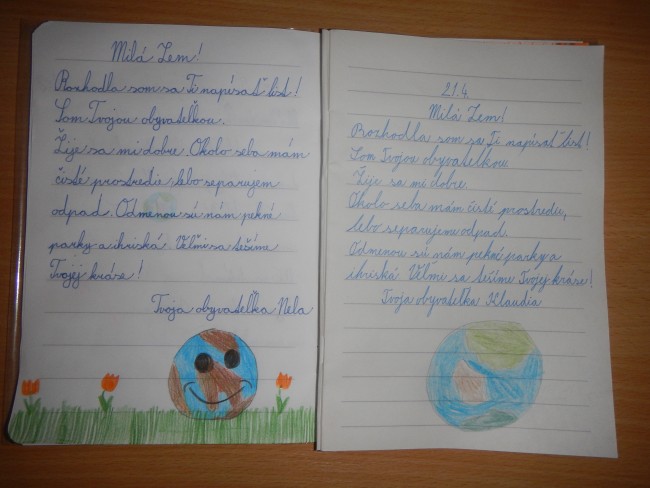 Milá Zem!
Rozhodla som sa Ti napísať list!
Som Tvojou obyvateľkou.
Žije sa mi dobre. Okolo seba mám
čisté prostredie, lebo separujem
odpad. Odmenou sú nám pekné
parky a ihriská. Veľmi sa tešíme
Tvojej kráse!
Tvoja obyvateľka Nela
21.4.
Milá Zem!
Rozhodla som sa Ti napísať list!
Som Tvojou obyvateľkou.
Žije sa mi dobre.
Okolo seba mám čisté prostredie,
lebo separujem odpad.
Odmenou sú nám pekné parky a
ihriská. Veľmi sa tešíme Tvojej kráse!
Tvoja obyvateľka Klaudia